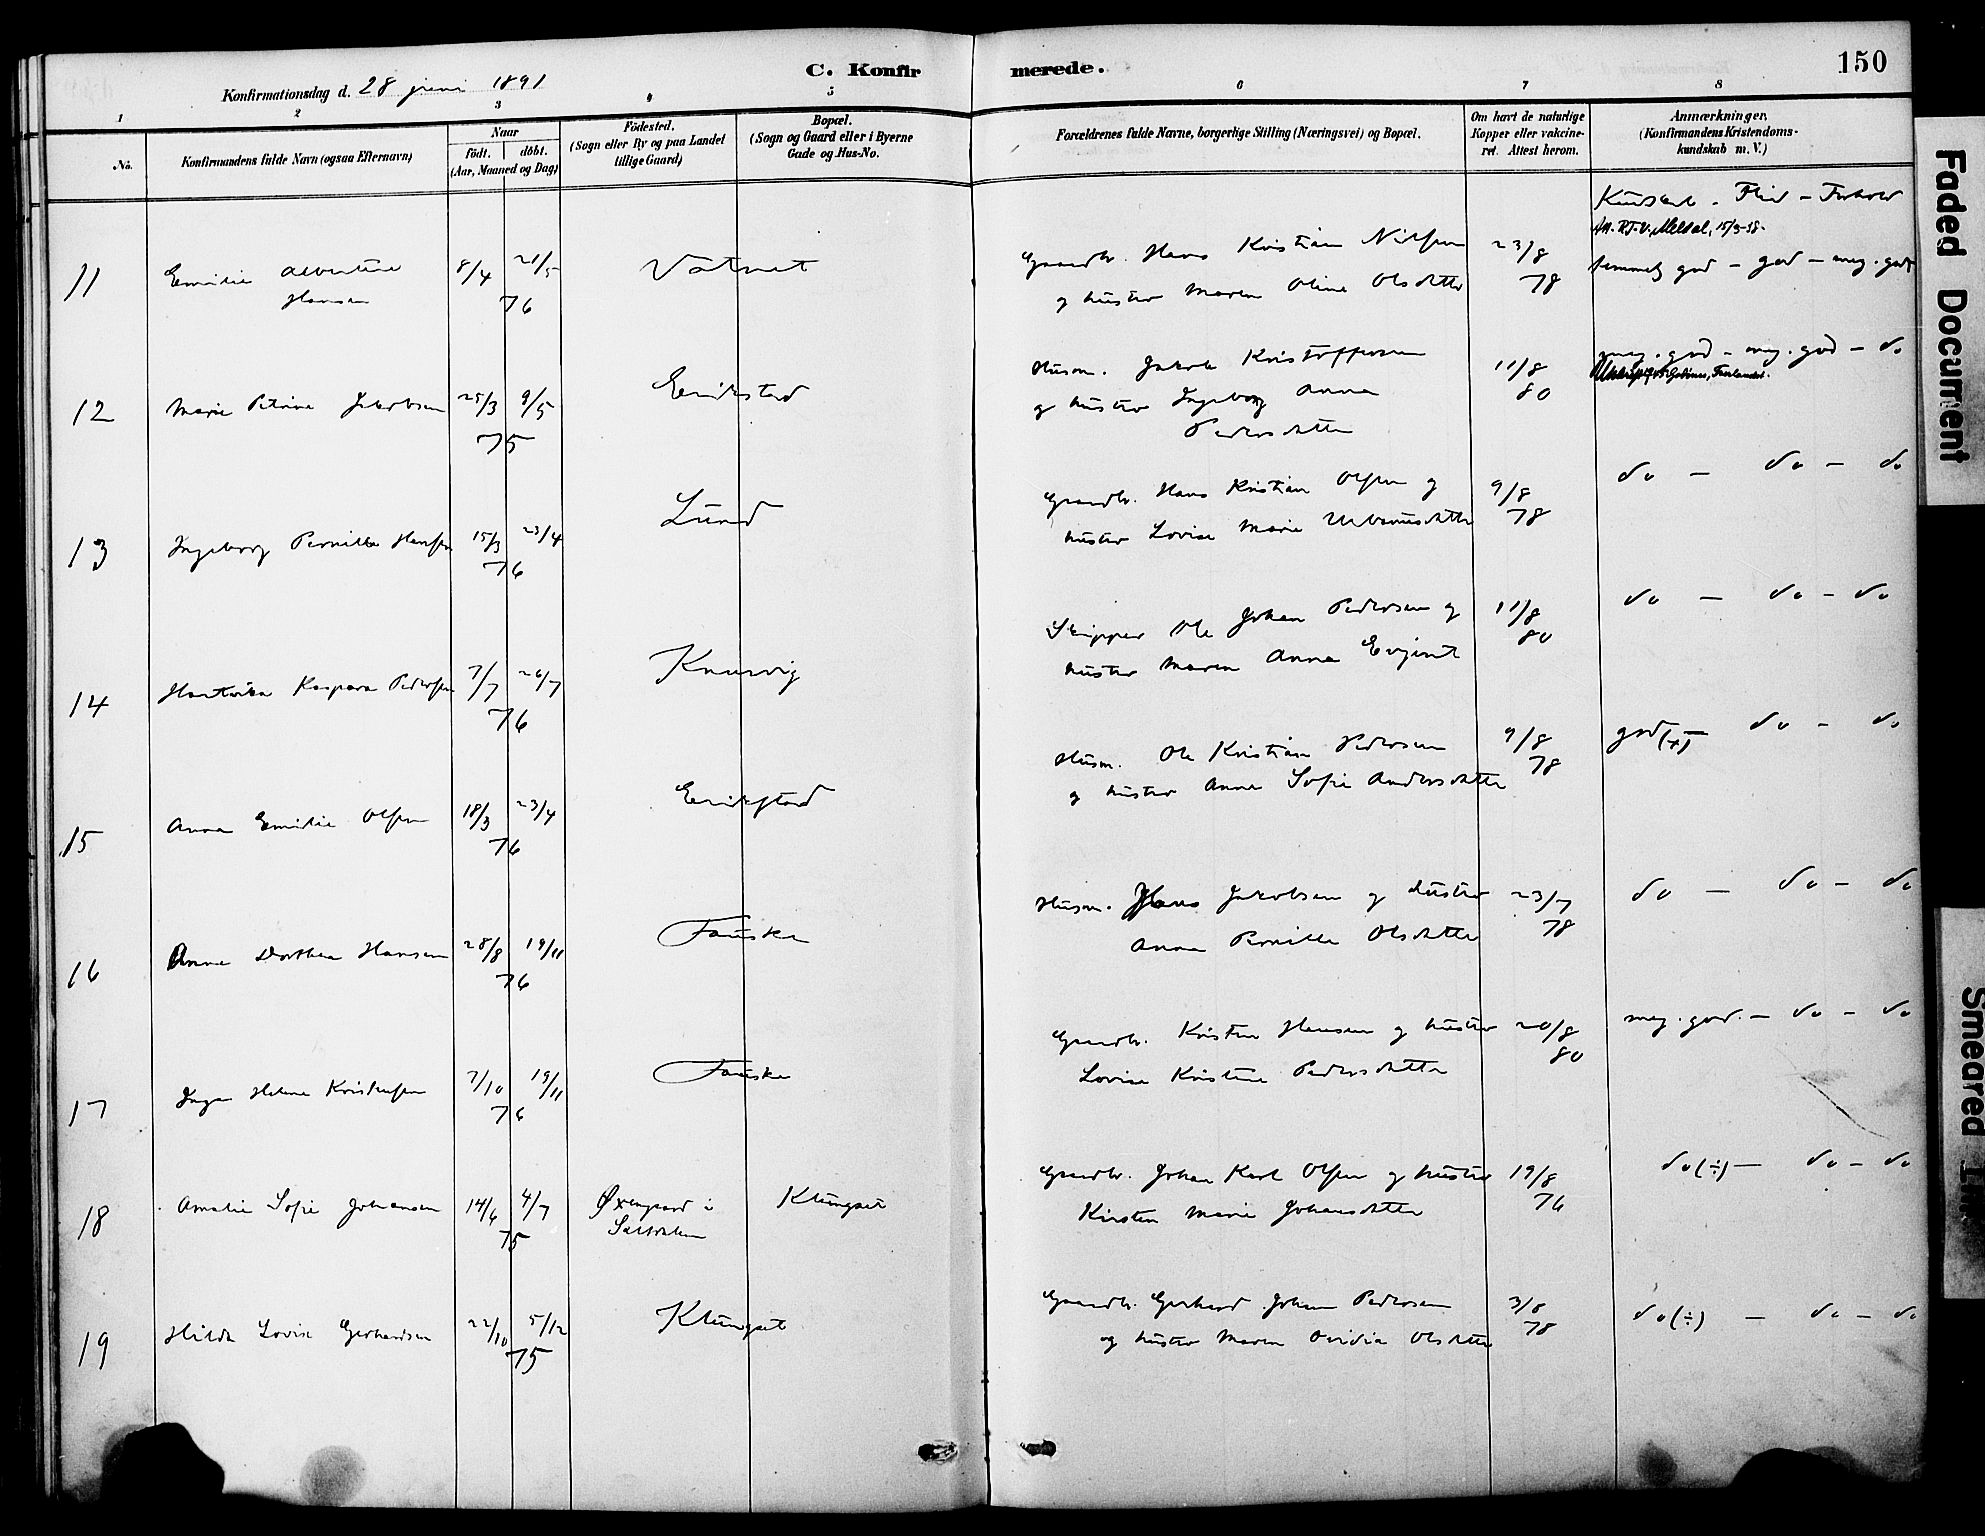 C. Konfirmerede.
150
Konfirmationsdag d. 28 juni 1891
1 2 3 4 5 6 7 8
No.
Konfirmandens fulde Navn (ogsaa Efternavn)
Naar
födt. döbt.
(Aar, Maaned og Dag)
Födested.
(Sogn eller By og paa Landet
tillige Gaard)
Bopæl.
(Sogn og Gaard eller i Byerne
Gade og Hus-No.
Forældrenes fulde Navne, borgerlige Stilling (Næringsvei) og Bopæl.
Om havt de naturlige
Kopper eller vakcine-
ret. Attest herom.
Anmærkninger.
(Konfirmandens Kristendoms-
kundskab m. V.)
Kundskab - Flid - Forhold
15/3-58.
11 Emilie Albertine 8/4 21/5 Vatnet Gaardbr. Hans Kristian Nilsen 23/8 temmelig god - god - meg. god
Hansen 76 og hustru Maren Oline Olsdatter 78
12 Marie Petrine Jakobsen 25/3 9/5 Erikstad Husm. Jakob Kristoffersen 11/8 meg. god - meg. god - do
75 og hustru Ingeborg Anna 80
Pedersdatter
13 Ingeborg Pernille Hansen 15/3 23/4 Lund Gaardbr. Hans Kristian Olsen og 9/8 do - do - do
76 hustru Lovise Marie Urbanusdatter 78
14 Hartvika Kaspara Pedersen 7/7 26/7 Knarvig Skipper Ole Johan Pedersen og 11/8 do - do - do
76 hustru Maren Anna 80
15 Anna Emilie Olsen 18/3 23/4 Erikstad Husm. Ole Kristian Pedersen 9/8 god(+) - do - do
76 og hustru Anna Sofie Andersdatter 78
16 Anna Dorthea Hansen 28/8 19/11 Fauske Husm. Hans Jakobsen og hustru 23/7 do - do - do
76 Anna Pernille Olsdatter 78
17 Inga Helene Kristensen 7/10 19/11 Fauske Gaardbr. Kristen Hansen og hustru 20/8 meg. god. - do - do
76 Lovise Kristine Pedersdatter 80
18 Amalie Sofie Johansen 14/6 4/7 Øxengaard i Klungset Gaardbr. Johan Karl Olsen og hustru 19/8 do(÷) - do - do
75 Saltdalen Kirsten Marie Johansdatter 76
19 Hilda Lovise Gerhardsen 22/10 5/12 Klungset Gaardbr. Gerhard Johan Pedersen 3/8 do(÷) - do - do
75 og hustru Maren Ovidia Olsdatter 78
Faded Document
Smeared Ink